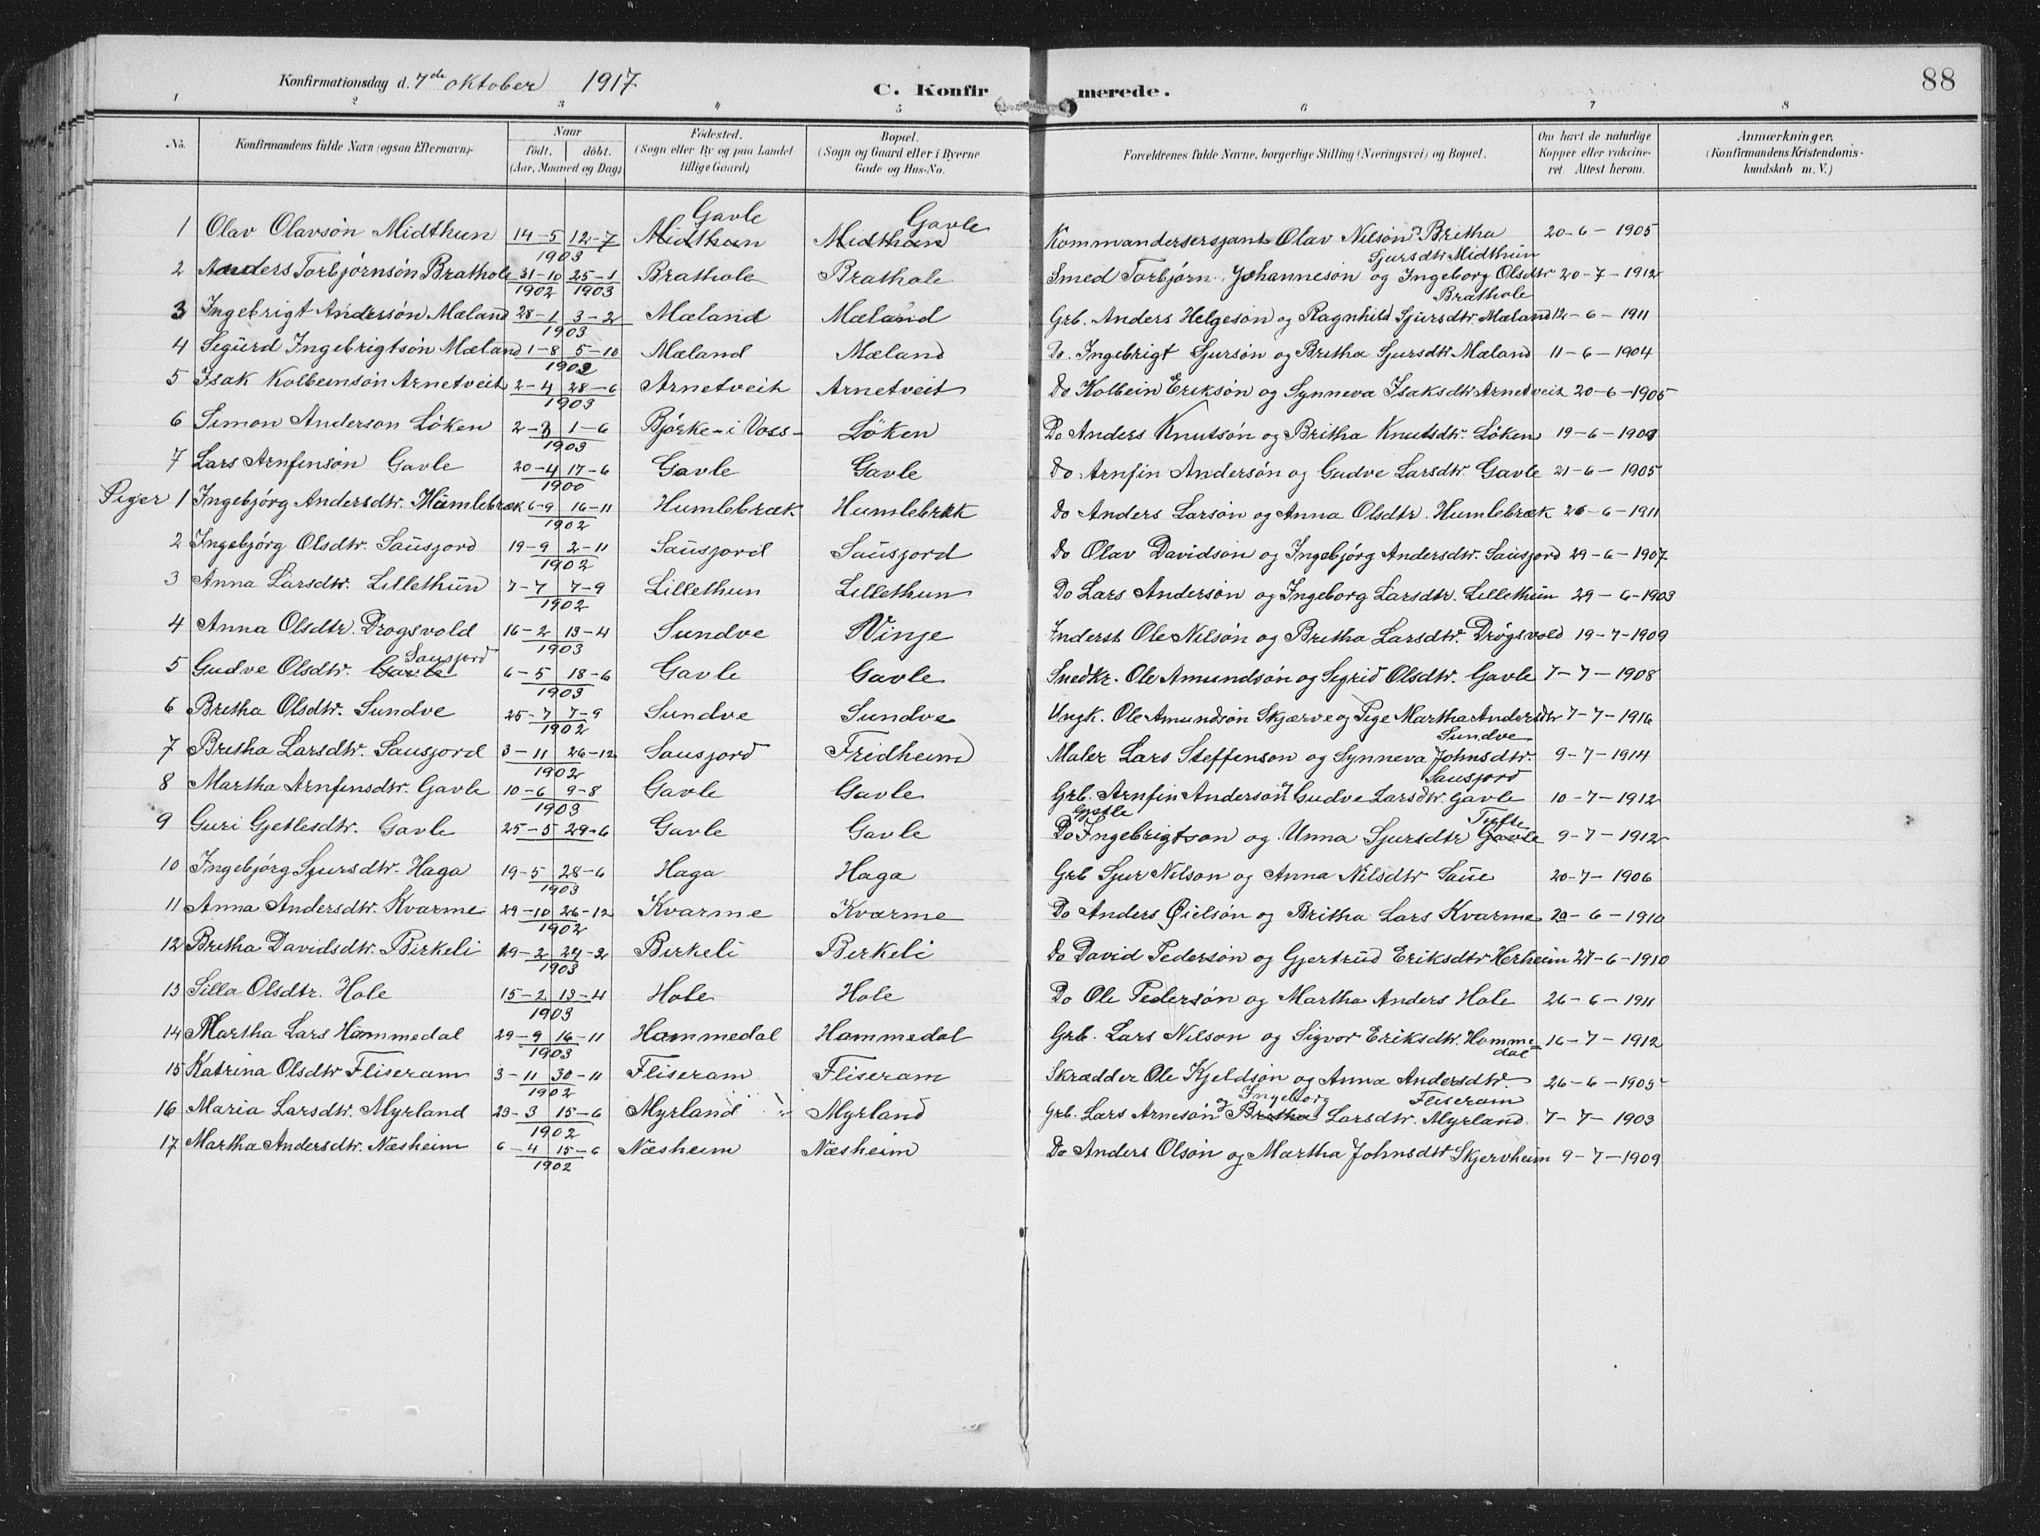 Konfirmationsdag d. 7de oktober 1917
C. Konfirmerede.
88
1 2 3 4 5 6 7 8
No. Konfirmandens fulde Navn (ogsaa Efternavn). Naar födt. döbt. (Aar, Maaned og Dag) Födested. (Sogn eller By og paa Landet tillige Gaard) Bopæl. (Sogn og Gaard eller i Byerne Gade og Hus-No. Forældrenes fulde Navne, borgerlige Stilling (Næringsvei) og Bopæl. Om havt de naturlige Kopper eller vakcineret. Attest herom. Anmærkninger, (Konfirmandens Kristendomskundskab m. V.)
1 Olav Olavsön Midthun 14-5 12-7 1903 Midthun Gavle Midthun Gavle Kommandersersjant Olav Nilsön Britha Sjursdtr Midthun 20-6-1905
2 Anders Torbjörnsön Brathole 31-10 1902 25-1 1903 Brathole Brathole Smed Torbjörn Johanneson og Ingeborg Olsdtr Brathole 20-7-1912
3 Ingebrigt Andersön Mæland 28-1 3-2 1903 Mæland Mæland Grb. Anders Helgeson og Ragnhild Sjursdtr. Mæland 12-6-1911
4 Sigurd Ingebrigtsön Mæland 1-8 5-10 1902 Mæland Mæland Do. Ingebrigt Sjursön og Britha Sjursdtr Mæland 11-6-1904
5 Isak Kolbeinsön Arnetveit 2-4 28-6 1903 Arnetveit Arnetveit Do Kolbein Eriksön og Synneva Isaksdtr Arnetveit 20-6-1905
6 Simon Anderson Löken 2-3 1-6 1903 Björke - i Voss - Löken Do Anders Knutsön og Britha Knutsdtr. Löken 19-6-1903
7 Lars Arnfinsön Gavle 20-4 17-6 1900 Gavle Gavle Do Arnfin Andersön og Gudve Larsdtr Gavle 21-6-1905
Piger 1 Ingebjörg Andersdtr. Humlebræk 6-9 16-11 1902 Humlebræk Humlebræk Do Anders Larsön og Anna Olsdtr. Humlebræk 26-6-1911
2 Ingebjörg Olsdtr. Sausjord 19-9 2-11 1902 Sausjord Sausjord Do Olav Davidson og Ingebjörg Andersdtr. Sausjord 29-6-1907
3 Anna Larsdtr. Lillethun 7-7 7-9 1902 Lillethun Lillethun Do Lars Andersön og Ingeborg Larsdtr. Lillethun 29-6-1903
4 Anna Olsdtr. Drogsvold 16-2 13-4 1903 Sundve Vinje Inderst Ole Nilsön og Britha Larsdtr. Drögsvold 19-7-1909
5 Gudve Olsdtr. Gavle Sausjord 6-5 18-6 1903 Gavle Gavle Snedkr. Ole Amundsön og Sigrid Olsdtr. Gavle 7-7-1908
6 Britha Olsdtr. Sundve 25-7 7-9 1902 Sundve Sundve Ungk. Ole Amundsön Skjærve og Pige Martha Andersdtr Sundve 7-7-1916
7 Britha Larsdtr. Sausjord 3-11 26-12 1902 Sausjord Fridheim Maler Lars Steffenson og Synneva Johnsdtr. Sausjord 9-7-1914
8 Martha Arnfinsdtr. Gavle 10-6 9-8 1903 Gavle Gavle Grb. Arnfin Anderson og Gudve Larsdtr. Gavle 10-7-1912
9 Guri Gjetlesdtr. Gavle 25-5 29-6 Gavle Gavle Do Gjetle Ingebrigtson og Unna Sjursdtr Gavle Tufte 9-7-1912
10 Ingebjörg Sjursdtr. Haga 19-5 28-6 1903 Haga Haga Grb Sjur Nilson og Anna Nilsdtr Saue 20-7-1906
11 Anna Andersdtr. Kvarme 29-10 26-12 1902 Kvarme Kværme Do Anders Öielsön og Britha Lars Kvarme 20-6-1910
12 Britha Davidsdtr. Birkeli 29-2 24-3 1903 Birkeli Birkeli Do David Pedersön og Gjertrüd Eriksdtr Herheim 27-6-1910
13 Silla Olsdtr. Hole 15-2 13-4 1903 Hole Hole Do Ole Pedersön og Martha Anders Hole 26-6-1911
14 Martha Lars Hommedal 29-9 16-11 1903 Hommedal Hommedal Grb. Lars Nilson og Sigvor Eriksdtr. Hommedal 16-7-1912
15 Katrina Olsdtr Fliseram 3-11 30-11 1902 Fliseram Fliseram Skrædder Ole Kjeldsön og Anna Andersdtr. Fliseram 26-6-1905
16 Maria Larsdtr. Myrland 23-3 15-6 1902 Myrland Myrland Grb. Lars Arnesön og Ingeborg Britha Larsdtr. Myrland 7-7-1903
17 Martha Andersdtr. Næsheim 6-4 15-6 1902 Næsheim Næsheim Do Anders Olsön og Martha Johnsdtr Skjervheim 9-7-1909